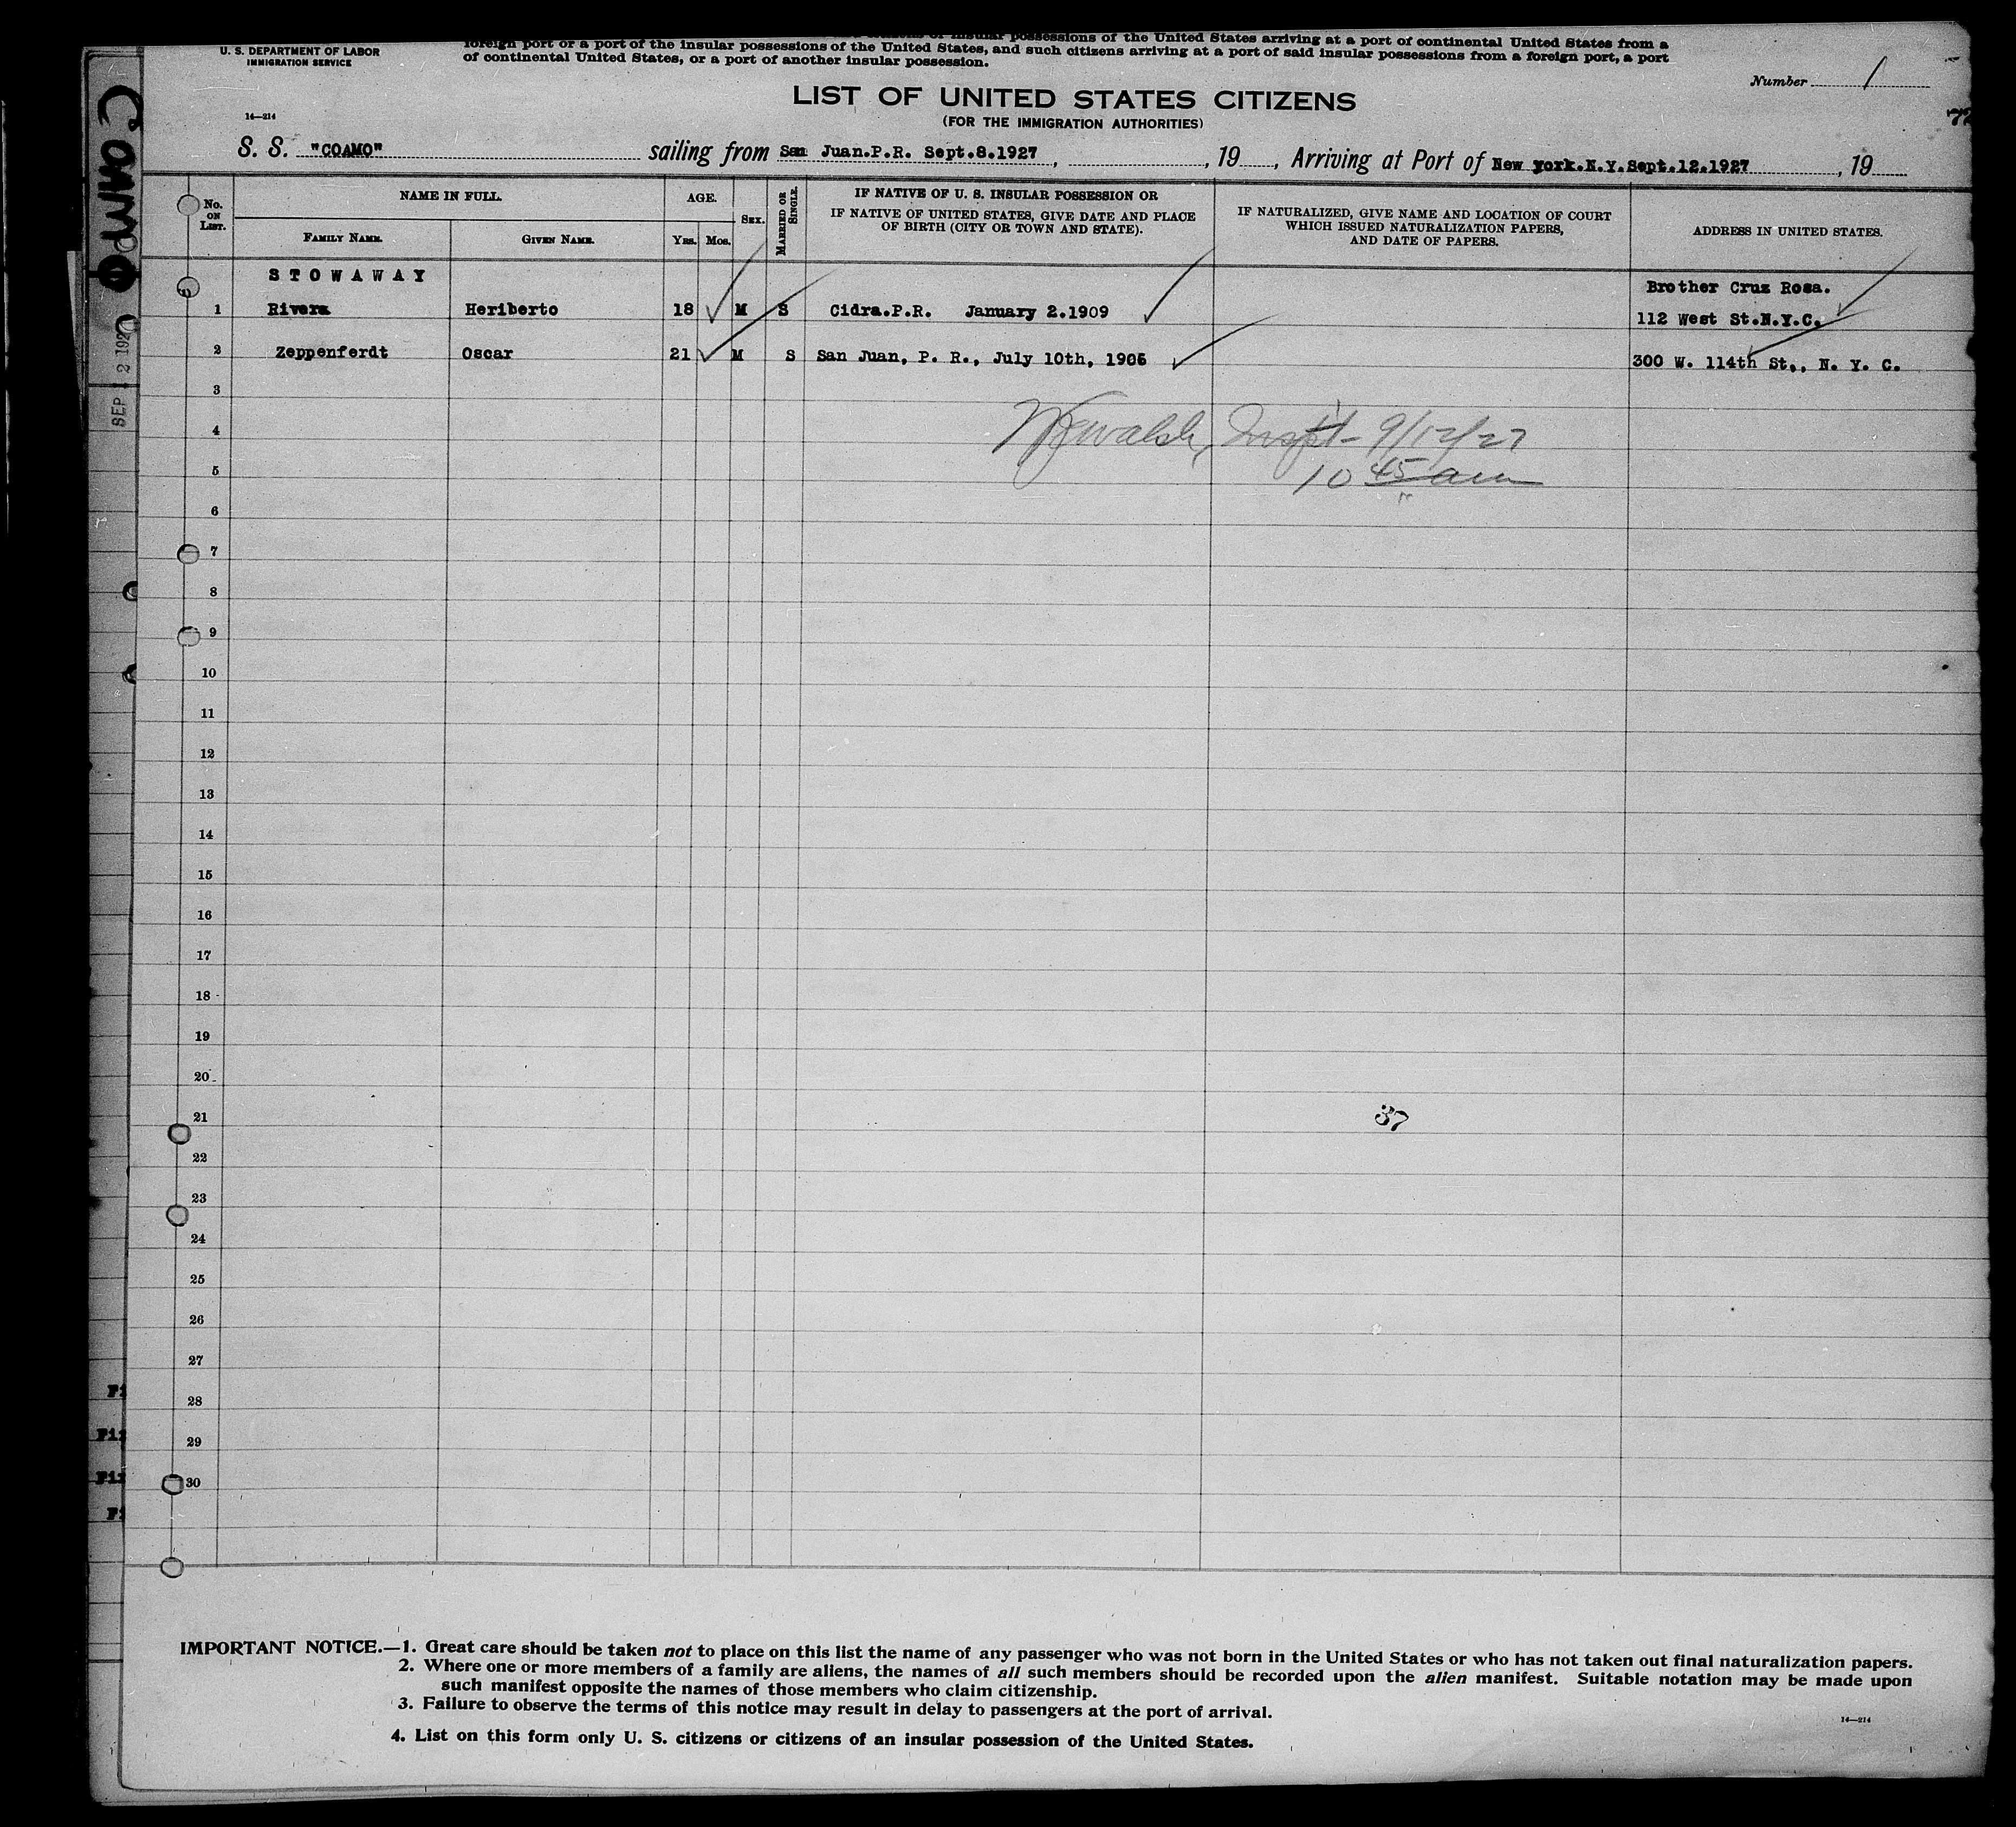 U. S. DEPARTMENT OF LABOR
IMMIGRATION SERVICE
insular possessions of the United States arriving at a port of continental United States from a
foreign port or a port of the insular possessions of the United States, and such citizens arriving at a port of said insular possessions from a foreign port, a port
of continental United States, or a port of another insular possession.
Number 1
LIST OF UNITED STATES CITIZENS
(FOR THE IMMIGRATION AUTHORITIES)
14—214
72
S. S. "COAMO" sailing from San Juan.P.R. Sept.8.1927, , 19 , Arriving at Port of New york.N.Y.Sept.12.1927 , 19
No. ON LIST.
NAME IN FULL.
FAMILY NAME.
GIVEN NAME.
AGE.
YRS. MOS.
SEX.
MARRIED OR SINGLE.
IF NATIVE OF U. S. INSULAR POSSESSION OR
IF NATIVE OF UNITED STATES, GIVE DATE AND PLACE
OF BIRTH (CITY OR TOWN AND STATE).
IF NATURALIZED, GIVE NAME AND LOCATION OF COURT
WHICH ISSUED NATURALIZATION PAPERS,
AND DATE OF PAPERS.
ADDRESS IN UNITED STATES.
STOWAWAY
Brother Cruz Rosa.
1 Rivera Heriberto 18 M S Cidra.P.R. January 2.1909 112 West St.N.Y.C.
2 Zeppenferdt Oscar 21 M S San Juan, P. R., July 10th, 1906 300 W. 114th St., N. Y. C.
3
4
Walsh, Inspt- 9/12/27
5
10 45 am
6
7
8
9
10
11
12
13
14
15
16
17
18
19
20
21
37
22
23
24
25
26
27
28
29
30
IMPORTANT NOTICE.—1. Great care should be taken not to place on this list the name of any passenger who was not born in the United States or who has not taken out final naturalization papers.
2. Where one or more members of a family are aliens, the names of all such members should be recorded upon the alien manifest. Suitable notation may be made upon
such manifest opposite the names of those members who claim citizenship.
3. Failure to observe the terms of this notice may result in delay to passengers at the port of arrival.
14—214
4. List on this form only U. S. citizens or citizens of an insular possession of the United States.